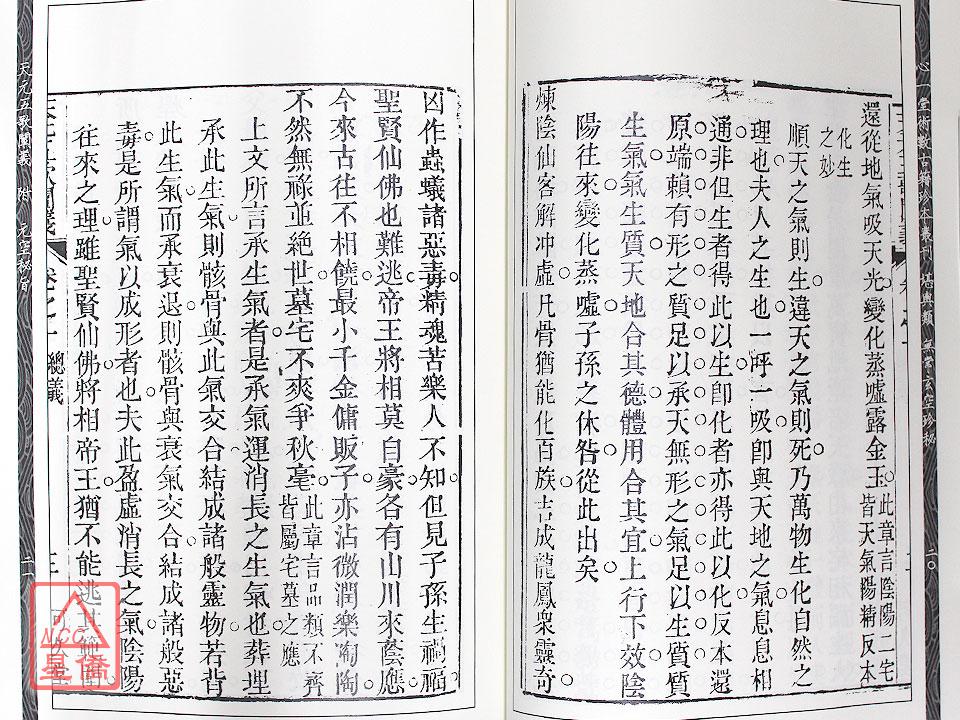 心一堂術數古籍珍本叢刊 堪輿類 無常玄空珍秘
二〇
還從地氣吸天光變化蒸噓露金玉此章言陰陽二宅皆天氣陽精反本
化生之妙
順天之氣則生違天之氣則死乃萬物生化自然之
理也夫人之生也一呼一吸卽與天地之氣息息相
通非但生者得此以生卽化者亦得此以化反本還
原端賴有形之質足以承天無形之氣足以生質質
生氣氣生質天地合其德體用合其宜上行下效陰
陽往來變化蒸噓子孫之休咎從此出矣
煉陰仙客解冲虛凡骨猶能化百族吉成龍鳳衆靈奇
凶作蟲蟻諸惡毒精魂苦樂人不知但見子孫生禍福
聖賢仙佛也難逃帝王將相莫自豪各有山川來蔭應
今來古往不相饒最小千金傭販子亦沾微潤樂陶陶
不然無祿並絕世墓宅不爽爭秋毫此章言品類不齊皆屬宅墓之應
上文所言承生氣者是承氣運消長之生氣也葬埋
承此生氣則骸骨與此氣交合結成諸般靈物若背
此生氣而承衰退則骸骨與衰氣交合結成諸般惡
毒是所謂氣以成形者也夫此盈虛消長之氣陰陽
往來之理雖聖賢仙佛將相帝王猶不能逃其範圍
卷之一 總義
天元五歌闡義 附 元空秘旨
二一
NCC
星僑